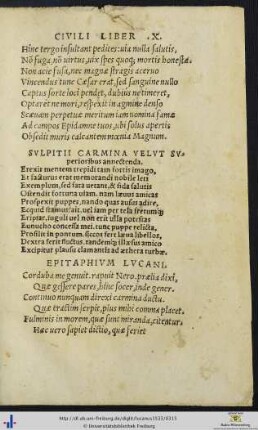 CIVILI LIBER .X.
Hinc tergo insultant pedites: uia nulla salutis,
Nō fuga, nō uirtus, uix spes quoq; mortis honestæ.
Non acie fusa, nec magnæ stragis aceruo
Vincendus tunc Cæsar erat, sed sanguine nullo
Captus sorte loci pendet, dubius ne timeret,
Optaret ne mori, respexit in agmine denso
Scæuam perpetuæ meritum iam nomina famæ
Ad campos Epidamne tuos, ubi solus apertis
Obsedit muris calcantem mœnia Magnum.
SVLPITII CARMINA VELVT SV-
perioribus annectenda.
Erexit mentem trepidi tam fortis imago,
Et facturus erat memorandi nobile leti
Exemplum, sed fata uetant, & fida salutis
Ostendit fortuna uiam. nam læuus amicas
Prospexit puppes, nando quas ausus adire,
Ecquid stamus? ait. uel iam per tela ferumq;
Eripiar, iuguli uel non erit ulla potestas
Eunucho concessa mei. tunc puppe relicta,
Prosilit in pontum. siccos fert læua libellos,
Dextra ferit fluctus. tandemq; illæsus amico
Excipitur plausu clamantis ad æthera turbæ.
EPITAPHIVM LVCANI.
Corduba me genuit. rapuit Nero. prælia dixi,
Quæ gessere pares, hinc socer, inde gener.
Continuo nunquam direxi carmina ductu
Quæ tractim serpie, plus mihi comma placet.
Fulminis in morem, quæ sunt miranda, citentur.
Hæc uero sapiet dictio, quæ feriet
http://dl.ub.uni-freiburg.de/diglit/lucanus1522/0313
© Universitätsbibliothek Freiburg